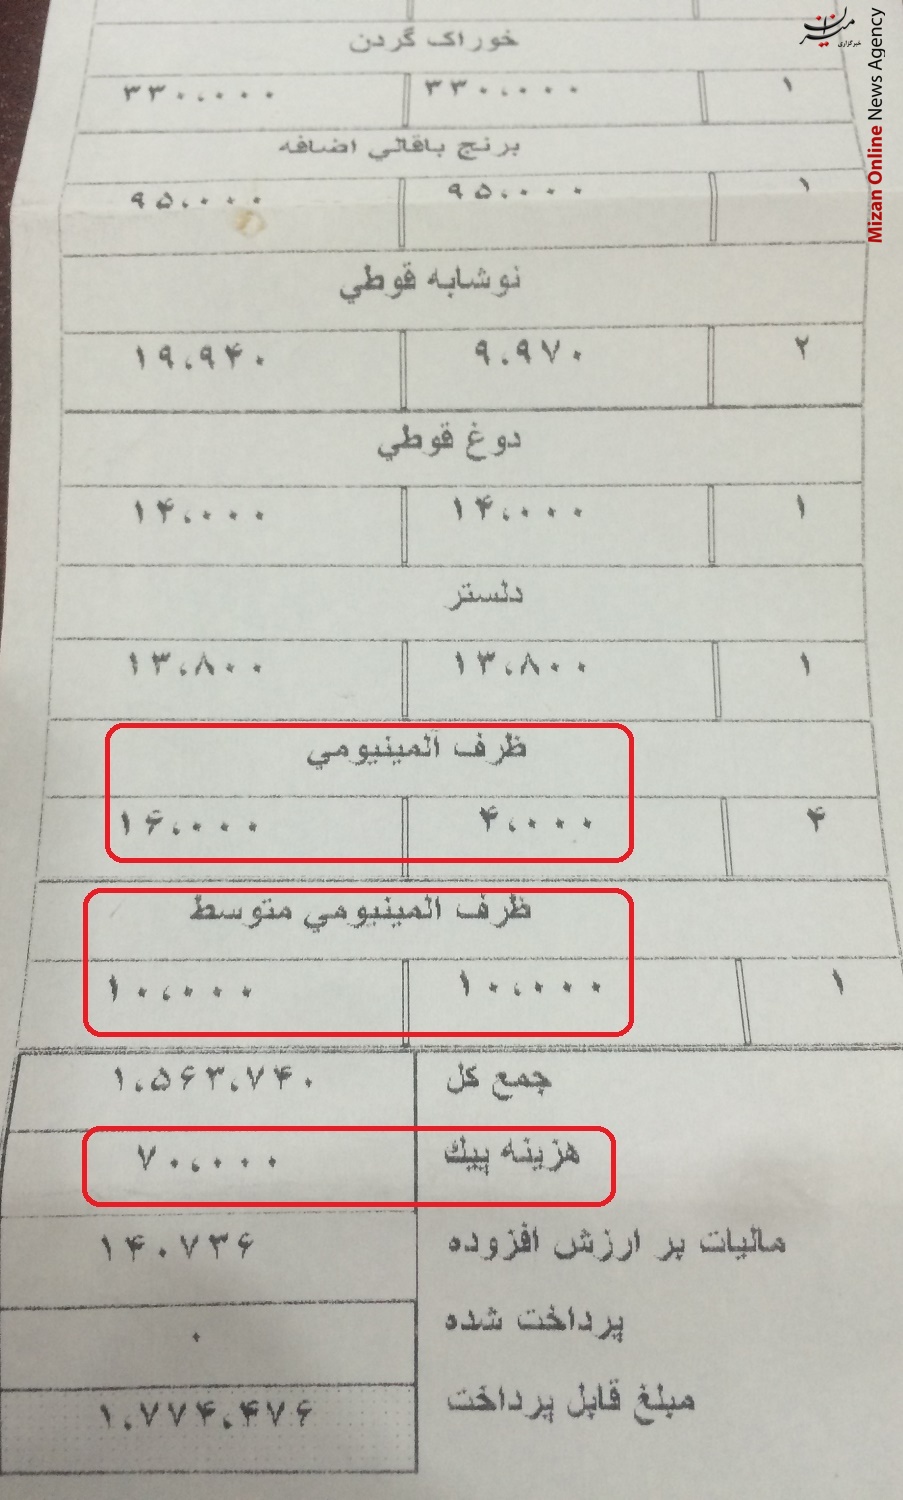 میزان
خبرگزاری
Mizan Online News Agency
خوراک گردن
۱ ۳۳۰،۰۰۰ ۳۳۰،۰۰۰
برنج باقالي اضافه
۱ ۹۵،۰۰۰ ۹۵،۰۰۰
نوشابه قوطي
۲ ۹،۹۷۰ ۱۹،۹۴۰
دوغ قوطي
۱ ۱۴،۰۰۰ ۱۴،۰۰۰
دلستر
۱ ۱۳،۸۰۰ ۱۳،۸۰۰
ظرف آلمينيومي
۴ ۴،۰۰۰ ۱۶،۰۰۰
ظرف المينيومي متوسط
۱ ۱۰،۰۰۰ ۱۰،۰۰۰
جمع کل ۱،۵۶۳،۷۴۰
هزينه پيك ۷۰،۰۰۰
ماليات بر ارزش افزوده ۱۴۰۷۳۶
پرداخت شده ۰
مبلغ قابل پرداخت ۱،۷۷۴،۴۷۶